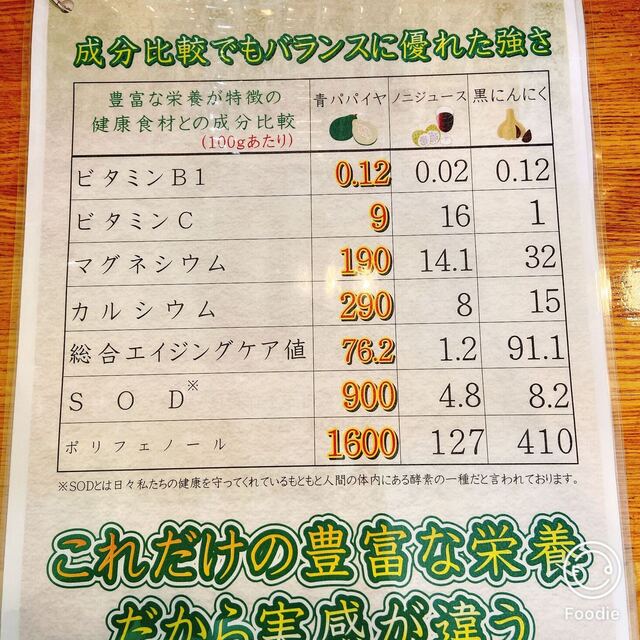 成分比較でもバランスに優れた強さ
豊富な栄養が特徴の
健康食材との成分比較
(100gあたり)
青パパイヤ ノニジュース 黒にんにく
ビタミンB1 0.12 0.02 0.12
ビタミンC 9 16 1
マグネシウム 190 14.1 32
カルシウム 290 8 15
総合エイジングケア値 76.2 1.2 91.1
SOD※ 900 4.8 8.2
ポリフェノール 1600 127 410
※SODとは日々私たちの健康を守ってくれているもともと人間の体内にある酵素の一種だと言われております。
これだけの豊富な栄養
だから実感が違う
Foodie